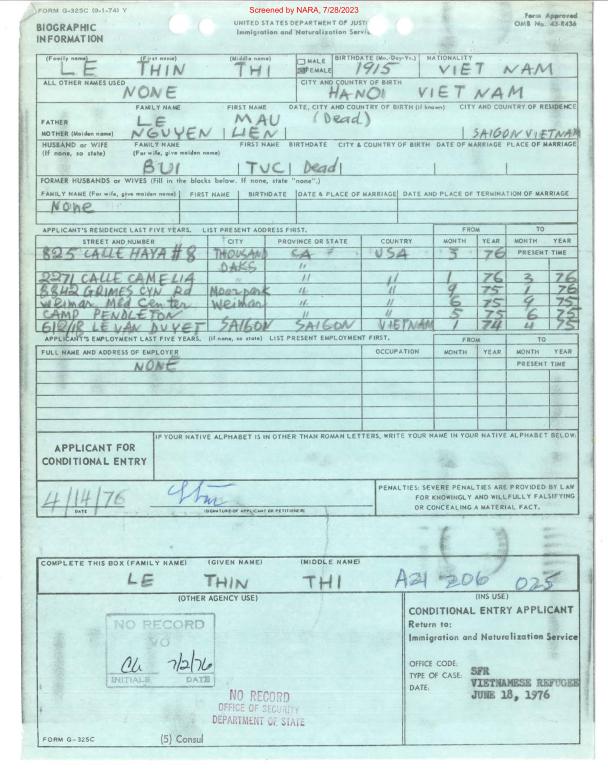 Screened by NARA, 7/28/2023
FORM G-325C (9-1-74) Y
BIOGRAPHIC INFORMATION
UNITED STATES DEPARTMENT OF JUSTI
Immigration and Naturalization Servi
Form Approved
OMB No. 43-R436
(Family name) (First name) (Middle name) MALE FEMALE BIRTHDATE (Mo.-Day-Yr.) NATIONALITY
LE THIN THI 1915 VIET NAM
ALL OTHER NAMES USED CITY AND COUNTRY OF BIRTH
NONE HANOI VIET NAM
FAMILY NAME FIRST NAME DATE, CITY AND COUNTRY OF BIRTH (If known) CITY AND COUNTRY OF RESIDENCE
FATHER LE MAU (Dead)
MOTHER (Maiden name) NGUYEN LIEN SAIGON VIETNAM
HUSBAND or WIFE (If none, so state) FAMILY NAME (For wife, give maiden name) FIRST NAME BIRTHDATE CITY & COUNTRY OF BIRTH DATE OF MARRIAGE PLACE OF MARRIAGE
BUI TUC Dead
FORMER HUSBANDS or WIVES (Fill in the blocks below. If none, state "none".)
FAMILY NAME (For wife, give maiden name) FIRST NAME BIRTHDATE DATE & PLACE OF MARRIAGE DATE AND PLACE OF TERMINATION OF MARRIAGE
None
APPLICANT'S RESIDENCE LAST FIVE YEARS. LIST PRESENT ADDRESS FIRST. FROM TO
STREET AND NUMBER CITY PROVINCE OR STATE COUNTRY MONTH YEAR MONTH YEAR
825 CALLE HAYA #8 THOUSAND OAKS CA USA 3 76 PRESENT TIME
2271 CALLE CAMELIA " " 1 76 3 76
8842 GRIMES CYN Rd Moorpark " " 9 75 1 76
Weimar Med Center Weimar " " 6 75 9 75
CAMP PENDLETON " " 5 75 6 75
LE VAN DUYET SAIGON SAIGON VIETNAM 1 74 4 75
APPLICANT'S EMPLOYMENT LAST FIVE YEARS. (If none, so state) LIST PRESENT EMPLOYMENT FIRST. FROM TO
FULL NAME AND ADDRESS OF EMPLOYER OCCUPATION MONTH YEAR MONTH YEAR
NONE PRESENT TIME
APPLICANT FOR CONDITIONAL ENTRY
IF YOUR NATIVE ALPHABET IS IN OTHER THAN ROMAN LETTERS, WRITE YOUR NAME IN YOUR NATIVE ALPHABET BELOW:
4/14/76
DATE (SIGNATURE OF APPLICANT OR PETITIONER)
PENALTIES: SEVERE PENALTIES ARE PROVIDED BY LAW
FOR KNOWINGLY AND WILLFULLY FALSIFYING
OR CONCEALING A MATERIAL FACT.
COMPLETE THIS BOX (FAMILY NAME) (GIVEN NAME) (MIDDLE NAME)
LE THIN THI A21 206 025
(OTHER AGENCY USE) (INS USE)
NO RECORD
VO
7/2/76
INITIALS DATE
NO RECORD
OFFICE OF SECURITY
DEPARTMENT OF STATE
CONDITIONAL ENTRY APPLICANT
Return to:
Immigration and Naturalization Service
OFFICE CODE: SFR
TYPE OF CASE: VIETNAMESE REFUGEE
DATE: JUNE 18, 1976
FORM G-325C
(5) Consul